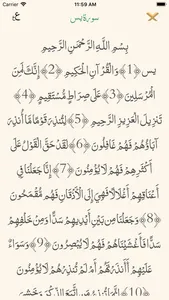 11:59 AM
سورة يس
بِسْمِ اللَّهِ الرَّحْمَنِ الرَّحِيمِ
يس ﴿1﴾ وَالْقُرْآنِ الْحَكِيمِ ﴿2﴾ إِنَّكَ لَمِنَ
الْمُرْسَلِينَ ﴿3﴾ عَلَى صِرَاطٍ مُسْتَقِيمٍ ﴿4﴾
تَنْزِيلَ الْعَزِيزِ الرَّحِيمِ ﴿5﴾ لِتُنْذِرَ قَوْمًا مَا أُنْذِرَ
آبَاؤُهُمْ فَهُمْ غَافِلُونَ ﴿6﴾ لَقَدْ حَقَّ الْقَوْلُ عَلَى
أَكْثَرِهِمْ فَهُمْ لَا يُؤْمِنُونَ ﴿7﴾ إِنَّا جَعَلْنَا فِي
أَعْنَاقِهِمْ أَغْلَالًا فَهِيَ إِلَى الْأَذْقَانِ فَهُمْ مُقْمَحُونَ
﴿8﴾ وَجَعَلْنَا مِنْ بَيْنِ أَيْدِيهِمْ سَدًّا وَمِنْ خَلْفِهِمْ
سَدًّا فَأَغْشَيْنَاهُمْ فَهُمْ لَا يُبْصِرُونَ ﴿9﴾ وَسَوَاءٌ
عَلَيْهِمْ أَأَنْذَرْتَهُمْ أَمْ لَمْ تُنْذِرْهُمْ لَا يُؤْمِنُونَ
﴿10﴾